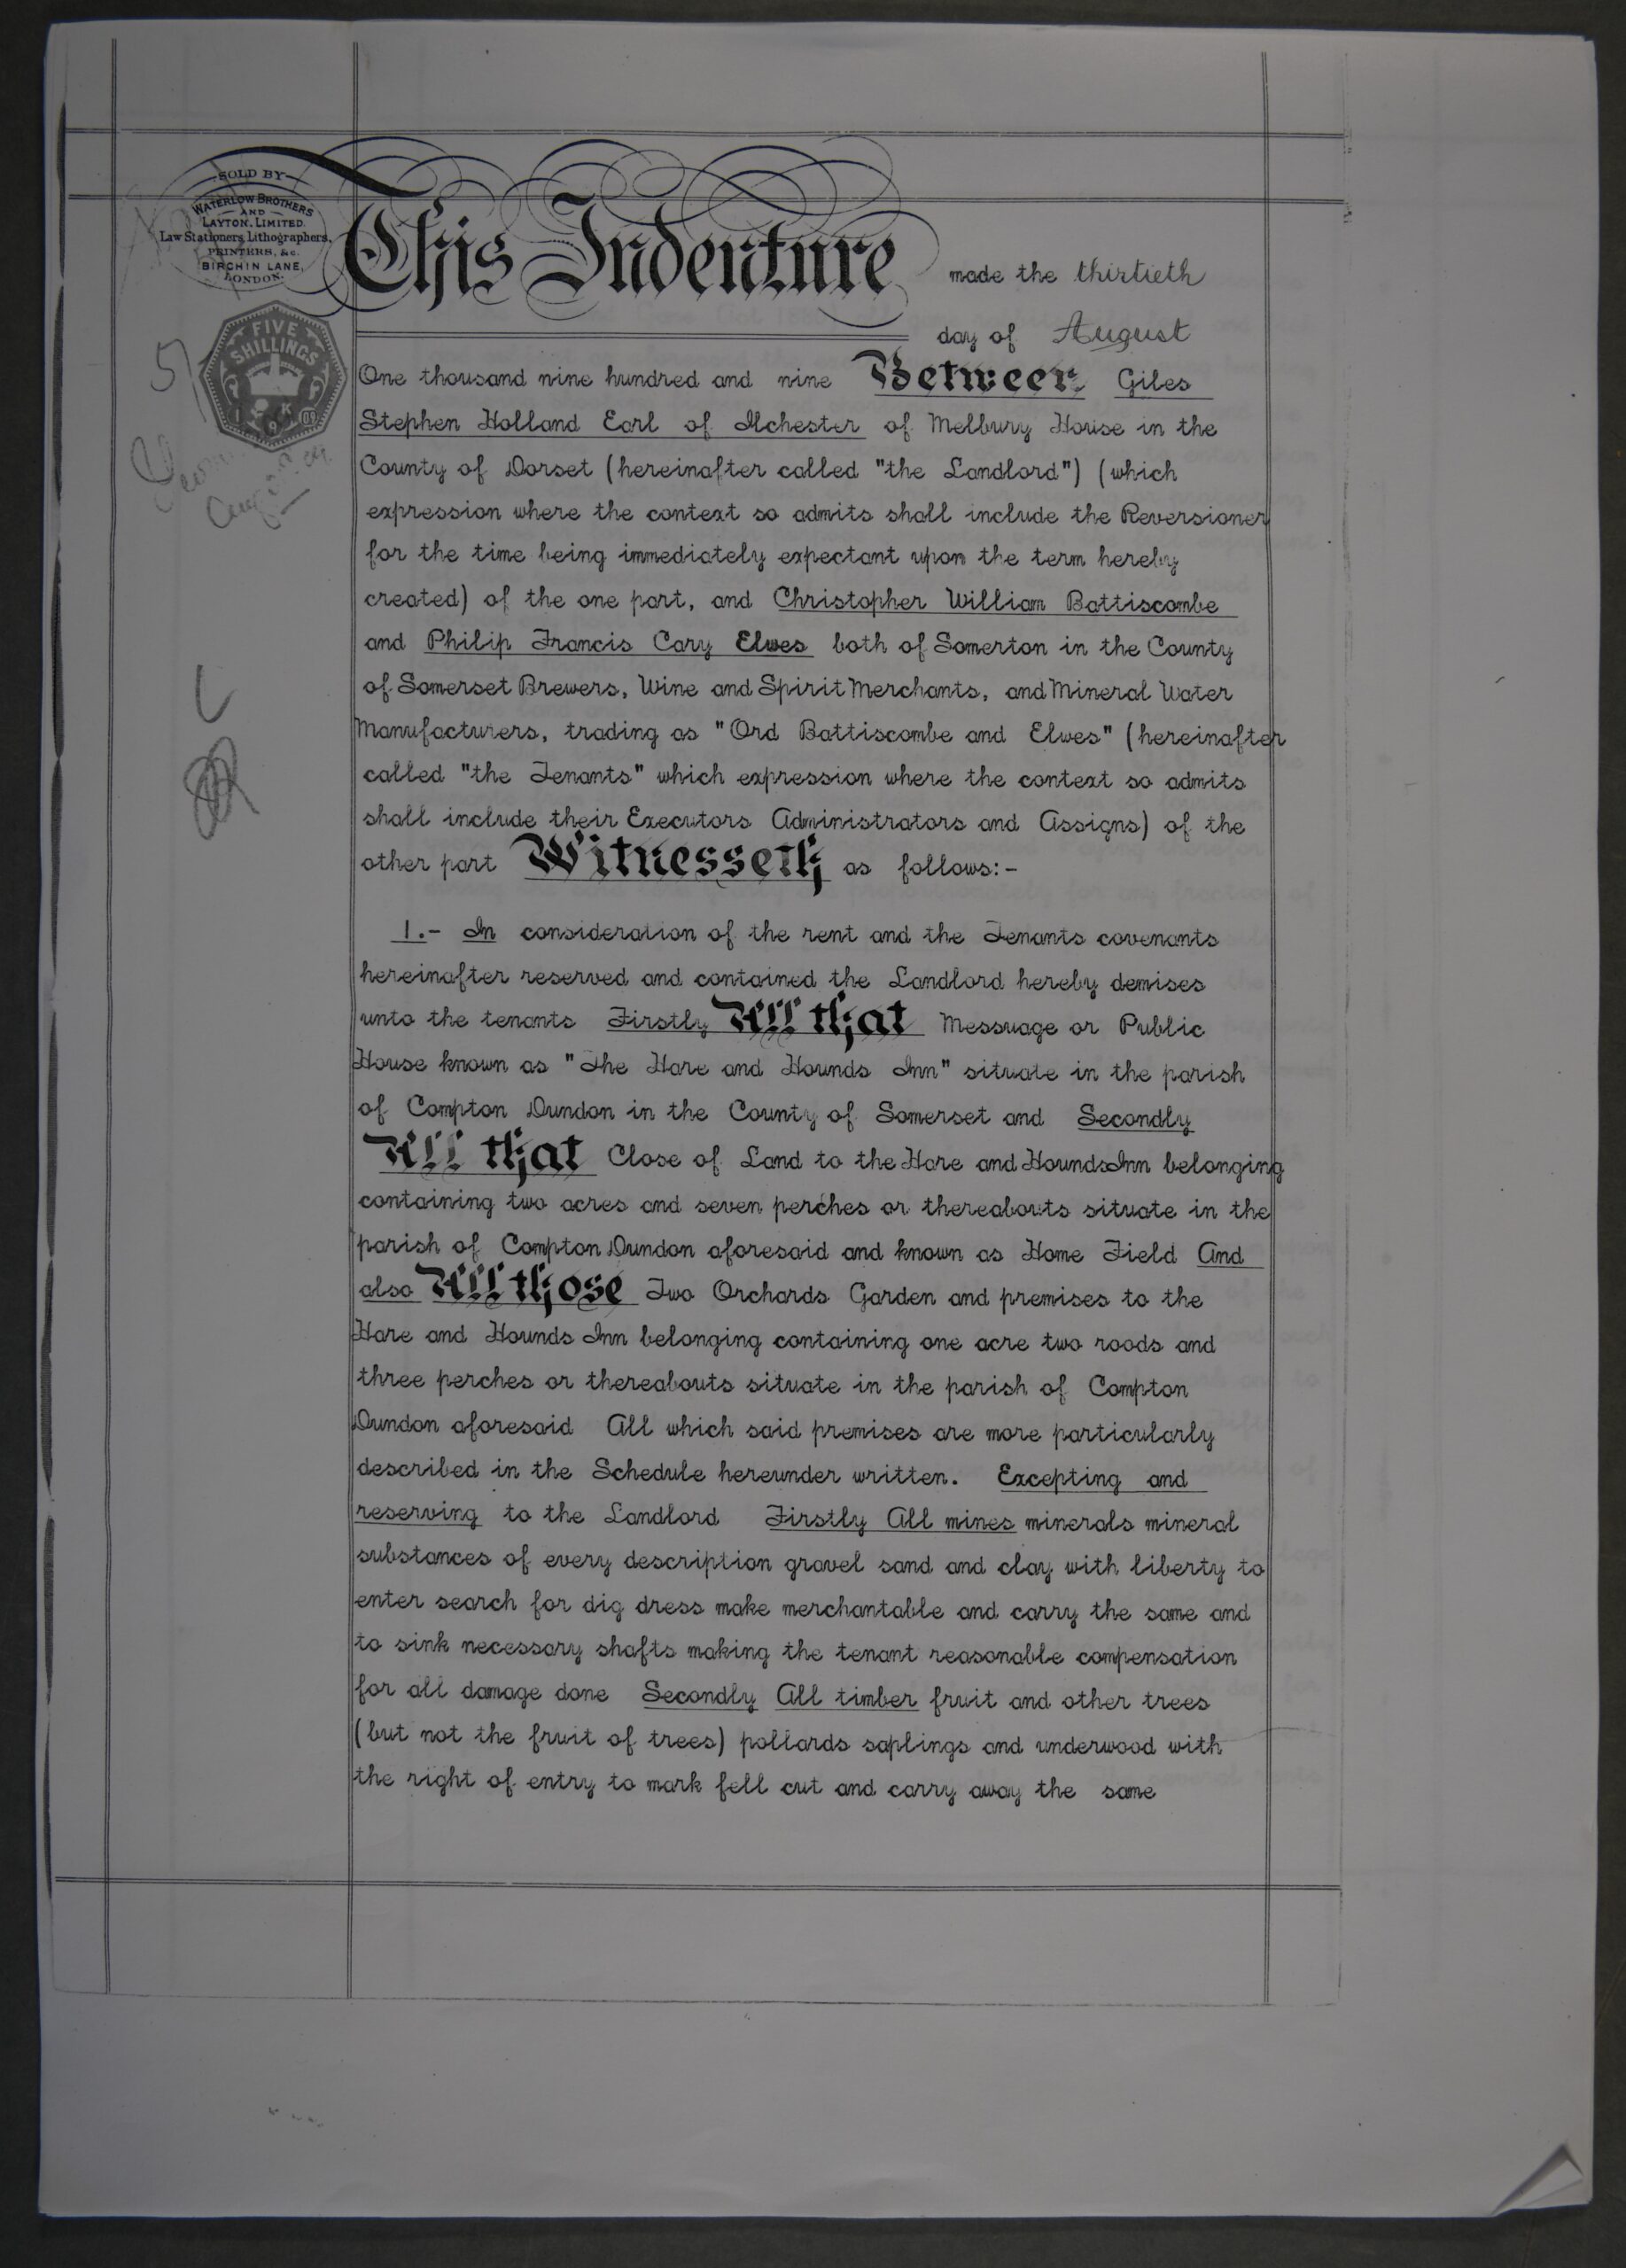 SOLD BY
WATERLOW BROTHERS
AND
LAYTON, LIMITED.
Law Stationers, Lithographers,
PRINTERS, &c.
BIRCHIN LANE,
LONDON.
This Indenture made the thirtieth
FIVE
SHILLINGS
5/
day of August
One thousand nine hundred and nine Between Giles
Stephen Holland Earl of Ilchester of Melbury House in the
County of Dorset (hereinafter called "the Landlord") (which
expression where the context so admits shall include the Reversioner
for the time being immediately expectant upon the term hereby
created) of the one part, and Christopher William Battiscombe
and Philip Francis Cary Elwes both of Somerton in the County
of Somerset Brewers, Wine and Spirit Merchants, and Mineral Water
Manufacturers, trading as "Ord Battiscombe and Elwes" (hereinafter
called "the Tenants" which expression where the context so admits
shall include their Executors Administrators and Assigns) of the
other part Witnesseth as follows:-
1.- In consideration of the rent and the Tenants covenants
hereinafter reserved and contained the Landlord hereby demises
unto the tenants Firstly All that Messuage or Public
House known as "The Hare and Hounds Inn" situate in the parish
of Compton Dundon in the County of Somerset and Secondly
All that Close of Land to the Hare and Hounds Inn belonging
containing two acres and seven perches or thereabouts situate in the
parish of Compton Dundon aforesaid and known as Home Field And
also All those Two Orchards Garden and premises to the
Hare and Hounds Inn belonging containing one acre two roods and
three perches or thereabouts situate in the parish of Compton
Dundon aforesaid All which said premises are more particularly
described in the Schedule hereunder written. Excepting and
reserving to the Landlord Firstly All mines minerals mineral
substances of every description gravel sand and clay with liberty to
enter search for dig dress make merchantable and carry the same and
to sink necessary shafts making the tenant reasonable compensation
for all damage done Secondly All timber fruit and other trees
(but not the fruit of trees) pollards saplings and underwood with
the right of entry to mark fell cut and carry away the same